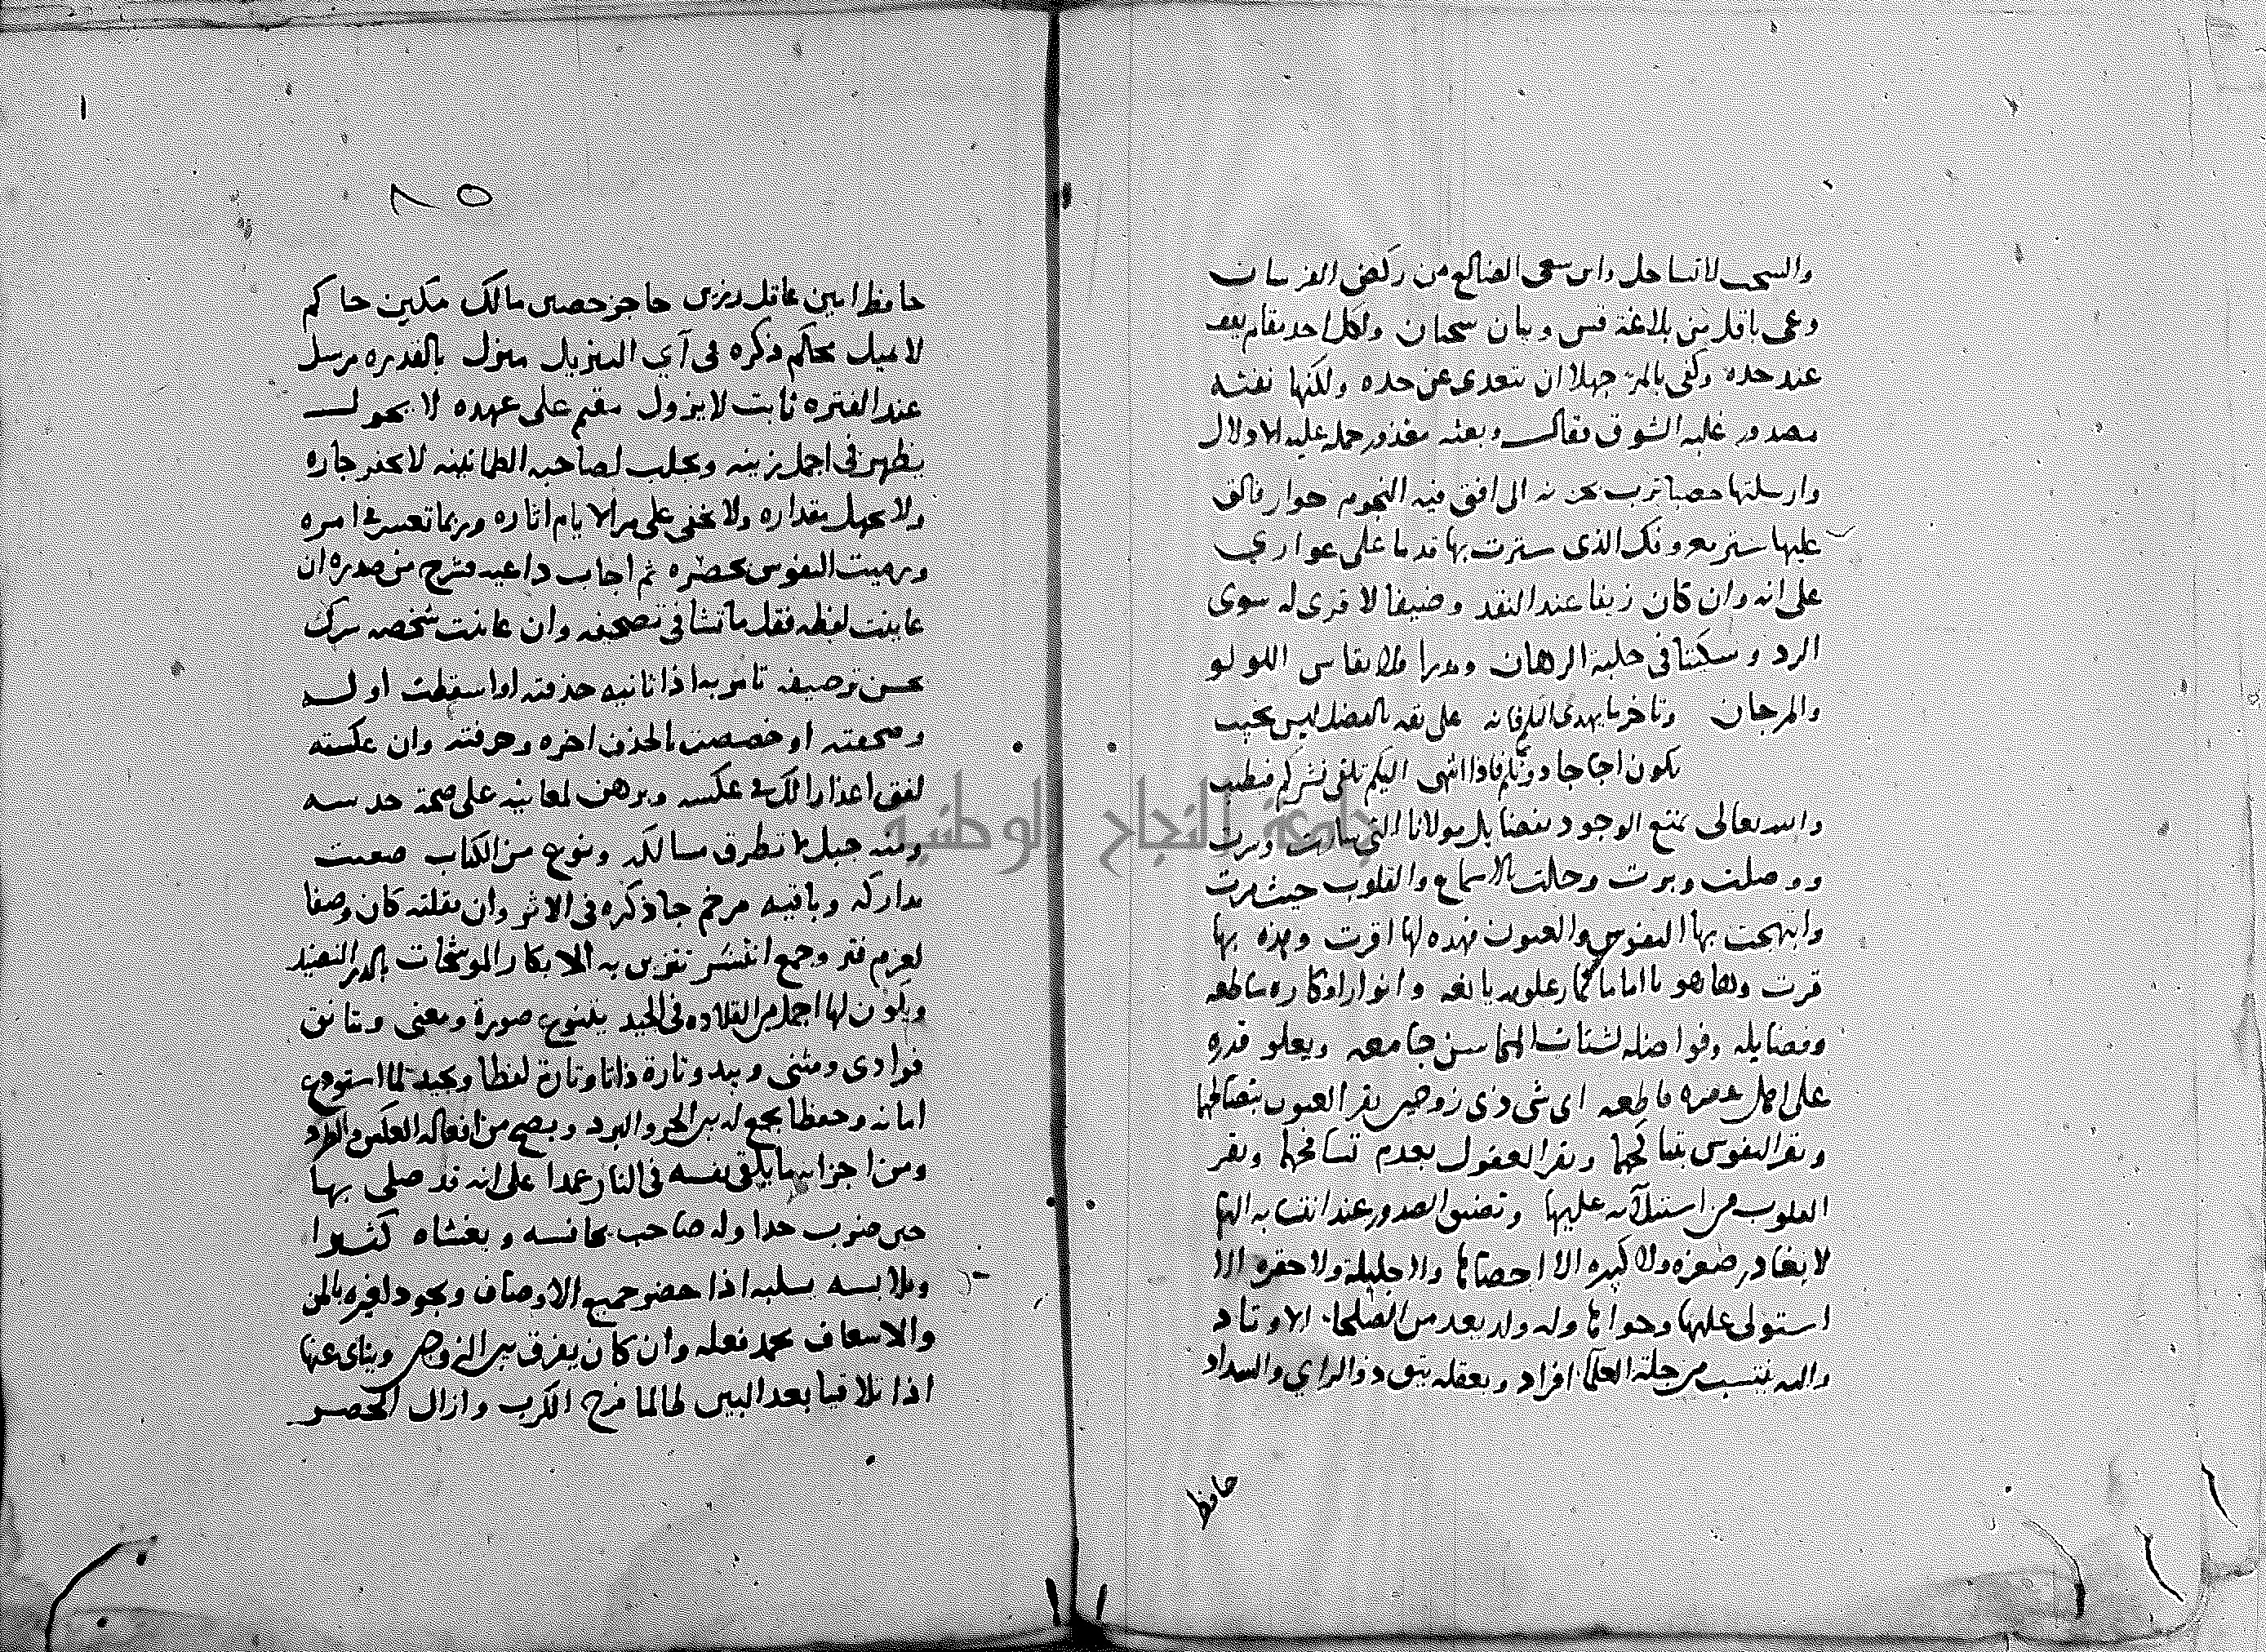 والسحب لا تساجل واين سعى الضالع من ركض الفرسان
وعي باقل من بلاغة قس وبيان سحبان ولكل احد مقام يقف
عند حده وكفى بالمرء جهلا ان يتعدى عن حده ولكنها نفثة
مصدور غلبه الشوق فقال وبعثه مقذور حمله عليه الادلال
وارسلتها حصبا ترب الى افق فيه النجوم جوار فالق
عليها ستر معروفك الذى سترت بها قدما على عواري
على انه وان كان زيفا عند النقد وضيفا لا قرى له سوى
الرد وسكيتا فى حلبة الرهان فلا يقاس اللولو
والمرجان على ثقه بالفضل ليس يخيب
يكون اجاجا دونكم فاذا انتهى اليكم تلقى نشركم فيطيب
والله تعالى يمتع الوجود بفضايل مولانا التى سارت وسرت
ووصلت وبرت وحلت بالاسماع والقلوب حيث مرت
وابتهجت بها النفوس والعيون فهذه لها اقرت وهذه بها
قرت وها هو يا اماما ثمار علومه يانعه وانوار افكاره ساطعه
وفضايله وفواضله لشتات المحاسن جامعه وبعلو قدره
على اهل عصره قاطعه اى شى ذى زوجين يقر العيون
وتقر النفوس وتقر العقول بعدم وتقر
القلوب من استيلائه عليها وتضيق الصدور عند انتسابه اليها
لا يغادر صغيره ولا كبيره الا احصاها ولا جليلة ولا حقيره الا
استولى عليها وحواها وله ولد يعد من الصلحاء الاوتاد
واليه ينتسب من جلة العلماء افراد وبعقله يثق ذو الراي والسداد
حافظ
٨٥
حافظ امين عاقل رزين حاجز حصين مالك مكين حاكم
لا يميل محكم ذكره فى آي التنزيل منزل بالقدره مرسل
عند الفتره ثابت لا يزول مقيم على عهده لا يحول
يظهر فى اجمل زينه ويجلب لصاحبه الطمانينه لا يخفر جاره
ولا يجهل مقداره ولا يخفى على مر الايام اثاره وربما تعسر فى امره
النفوس بحصره ثم اجاب داعيه فشرح من صدره ان
عاينت لفظه فقل ما تشا فى تصحيفه وان عاينت شخصه سرك
بحسن توصيفه اذا ثانيه حذفته او اسقطت اوله
وصحفته او خصصت بالحذف اخره وحرفته وان عكسته
لفق اعذارا لك فى عكسه وبرهن لمعانيه على صحة حدسه
ومنه جبل لا تطرق مسالكه ونوع من الكتاب صعبت
مداركه وباقيه مرخم جا ذكره فى الاثر وان نقلته كان وصفا
لعزم فتر وجمع انتشر تتزين به الابكار الموشحات بالدر النضيد
ويكون لها اجمل من القلاده فى الجيد يتنوع صورة ومعنى ويتانق
فرادى ومثنى ويبدو تارة ذاتا وتارة لفظا ويجيد لما استودع
امانه وحفظا يجمع له بين الحر والبرد ويصح من افعاله العكس والطرد
ومن اجزا يلقى نفسه فى النار عمدا على انه قد صلى بها
حين ضرب حدا وله صاحب يجانسه ويغشاه كثيرا
ويلابسه يسلبه اذا حضر جميع الاوصاف ويجود لغيره بالمن
والاسعاف يحمد فعله وان كان يفرق بين الزوجين ويناى عنها
اذا تلاقيا بعد البين طالما فرج الكرب وازال الحصر
جامعة النجاح الوطنية